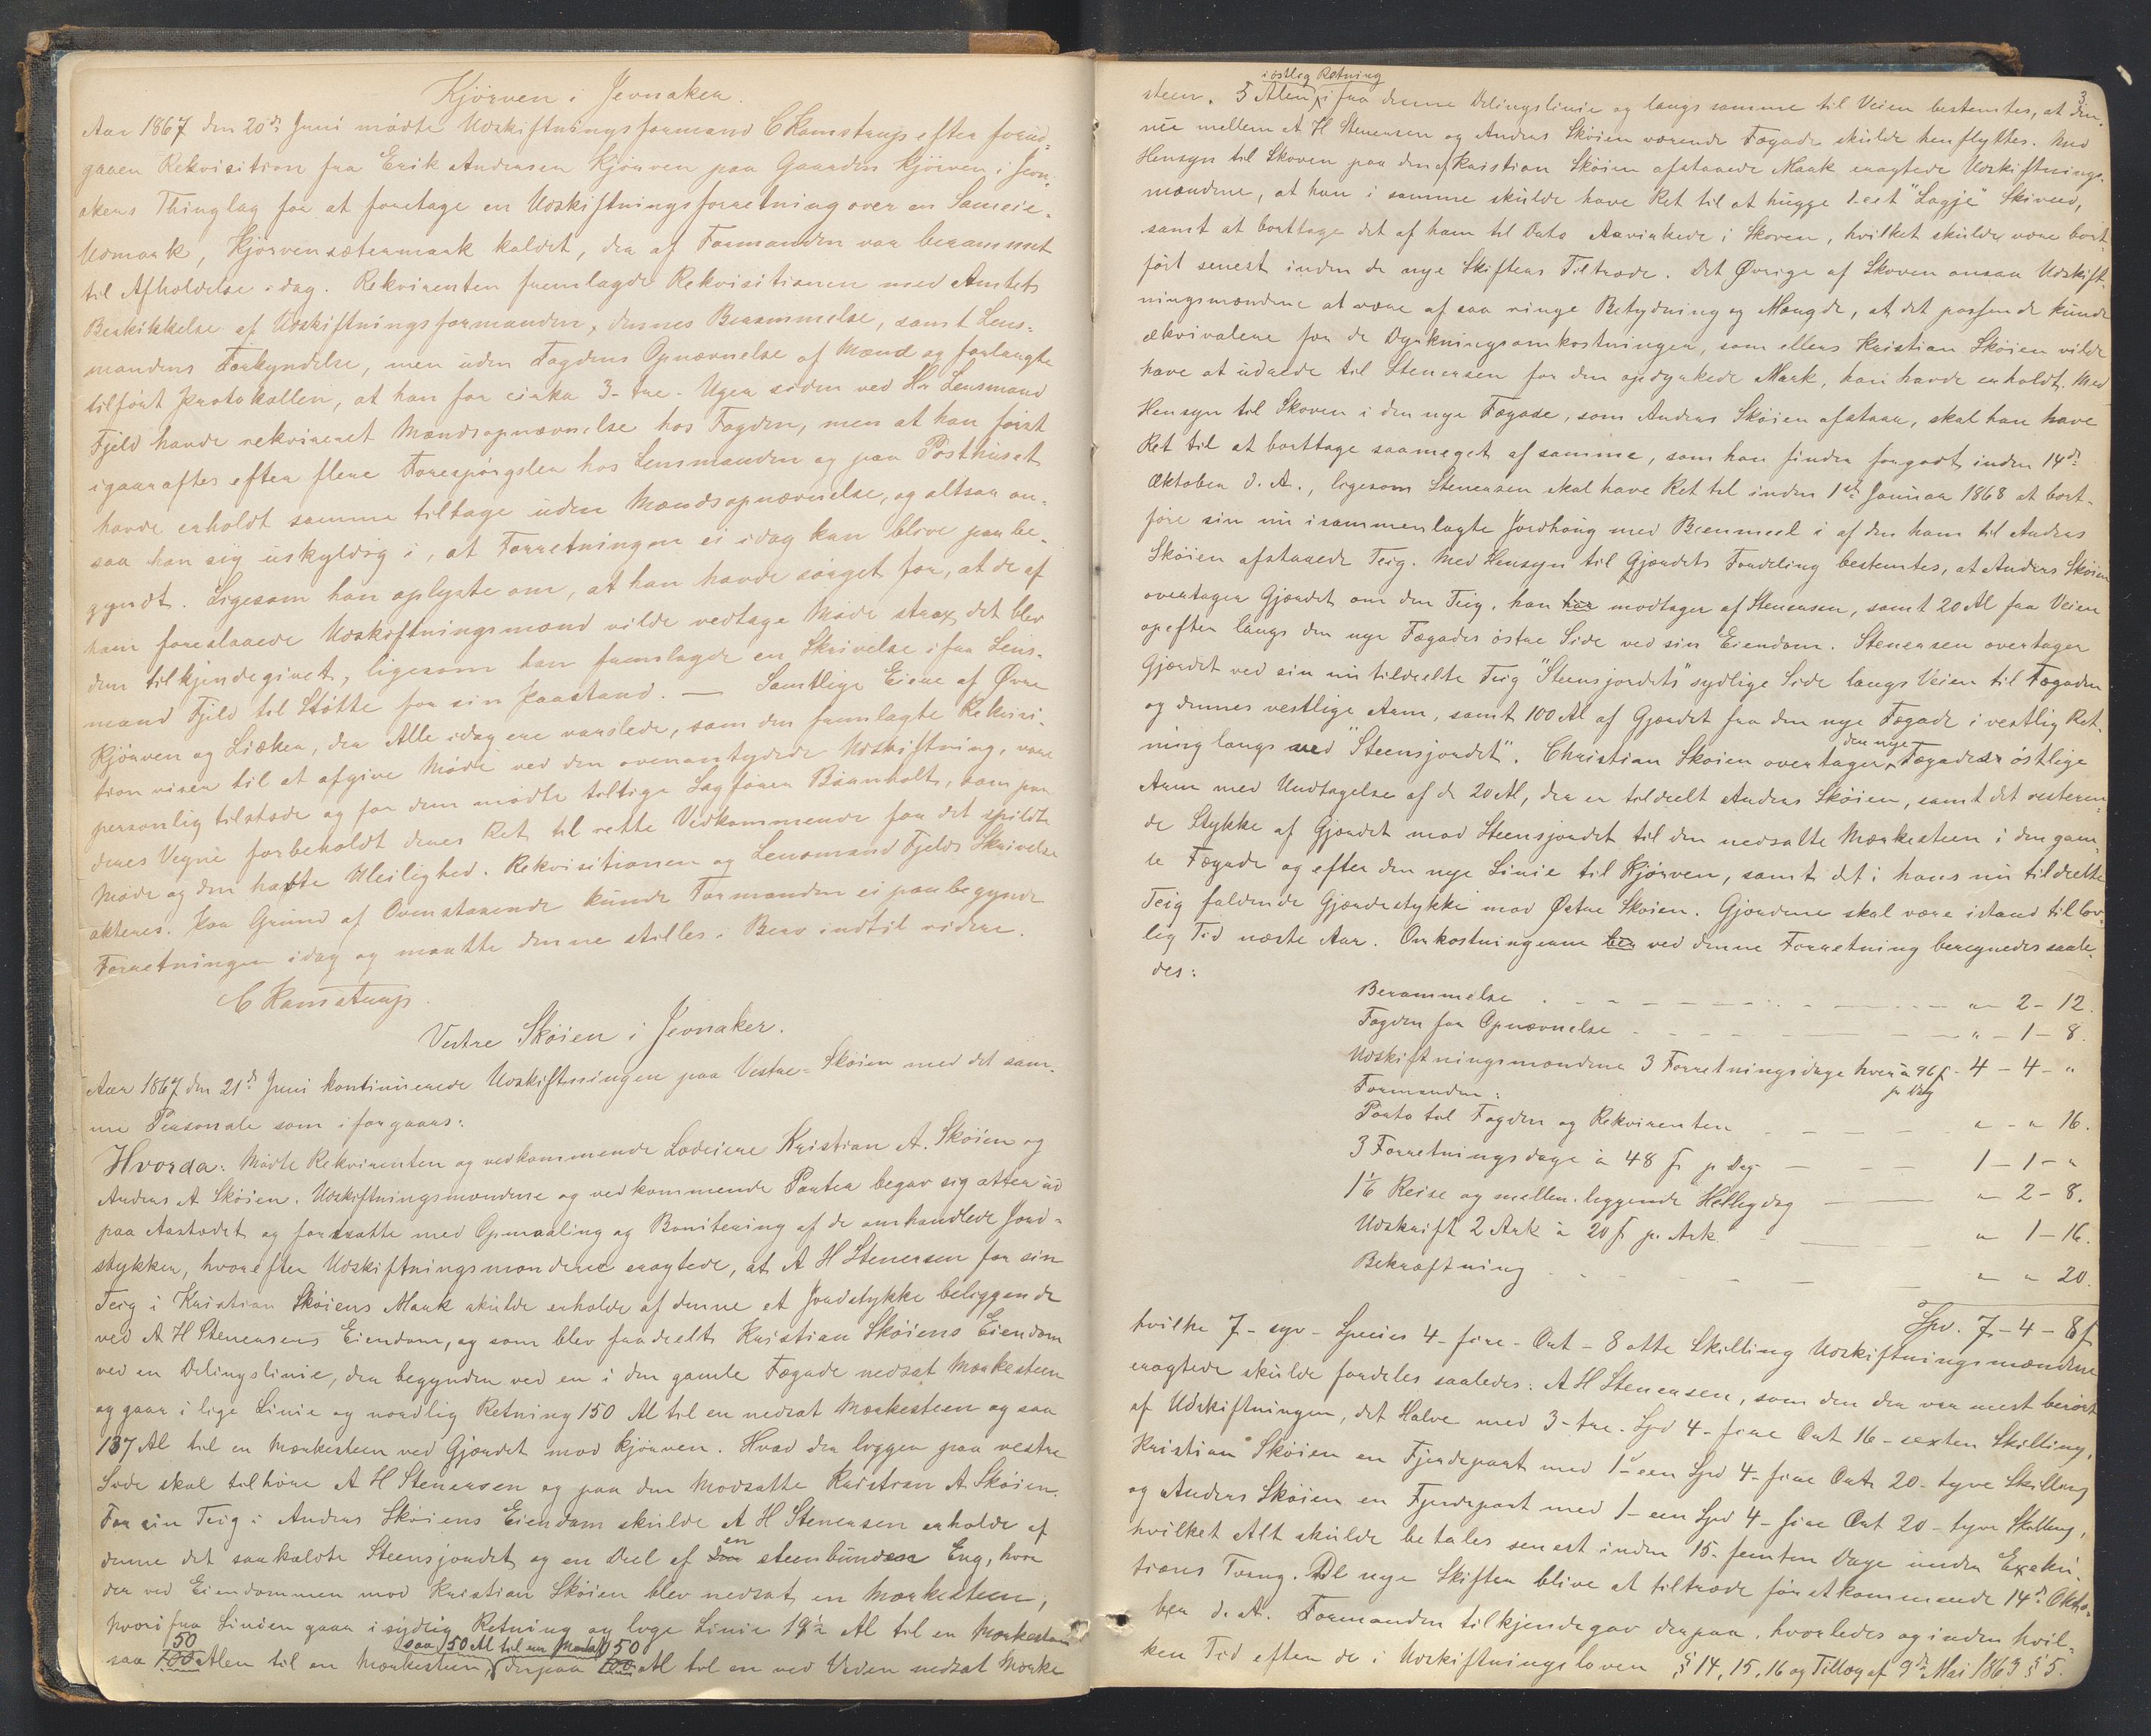 Kjørven i Jevnaker.
Aar 1867 den 20de Juni mødte Udskiftningsformand C Kamstrup efter forud-
gaaen Rekvisition fra Erik Andersen Kjørven paa Gaarden Kjørven i Jevn-
akers Thinglag for at foretage en Udskiftningsforretning over en Sameie-
Udmark, Kjørvensætermark kaldet, der af Formanden var berammet
til Afholdelse idag. Rekvirenten fremlagde Rekvisitionen med Amtets
Beskikkelse af Udskiftningsformanden, dennes Berammelse, samt Lens-
mandens Forkyndelse, men uden Fogdens Opnævnelse af Mænd og forlangte
tilført Protokollen, at han for cirka 3- tre- Uger siden ved Hr Lensmand
Fjeld havde rekvireret Mændsopnævnelse hos Fogden, men at han først
igaaraftes efter flere Forespørgsler hos Lensmanden og paa Posthuset
havde erholdt samme tilbage uden Mændsopnævnelse, og altsaa an-
saa han sig uskyldig i, at Forretningen ei idag kan blive paabe-
gyndt. Ligesom han oplyste om, at han havde sørget for, at de af
ham foreslaaede Udskiftningsmænd vilde vedtage Møde strax det blev
dem tilkjendegivet, ligesom han fremlagde en Skrivelse ifra Lens-
mand Fjeld til Støtte for sin Paastand. — Samtlige Eiere af Øvre
Kjørven og Liøker, der Alle idag ere varslede, som den fremlagte Rekvisi-
tion viser til at afgive Møde ved den ovenantydede Udskiftning, vare
personlig tilstede og for dem mødte tillige Sagfører Bramholt, som paa
deres Vegne forbeholdt deres Ret til rette Vedkommende for det spildte
Møde og den havte Uleilighed. Rekvisitionen og Lensmand Fjelds Skrivelse
akteres. Paa Grund af Ovenstaaende kunde Formanden ei paabegynde
Forretningen idag og maatte denne stilles i Bero indtil videre.
C Kamstrup.
Vestre Skøien i Jevnaker.
Aar 1867 den 21de Juni kontinuerede Udskiftningen paa Vestre-Skøien med det sam-
me Personale som iforgaars:
Hvorda: Mødte Rekvirenten og vedkommende Lodeiere Kristian A. Skøien og
Anders A Skøien. Udskiftningsmændene og vedkommende Parter begav sig atter ud
paa Aastedet og fortsatte med Opmaaling og Bonitering af de omhandlede Jord-
stykker, hvorefter Udskiftningsmændene eragtede, at A H Stenersen for sin
Teig i Kristian Skøiens Mark skulde erholde af denne et Jordstykke beliggende
ved A H Stenersens Eiendom, og som blev fradeelt Kristian Skøiens Eiendom
ved en Delingslinie, der begynder ved en i den gamle Fægade nedsat Mærkesteen
og gaar i lige Linie og nordlig Retning 150 Al til en nedsat Mærkesteen og saa
137 Al til en Mærkesteen ved Gjærdet mod Kjørven. Hvad der ligger paa vestre
Side skal tilhøre A H Stenersen og paa den Modsatte Kristian A. Skøien.
For sin Teig i Anders Skøiens Eiendom skulde A H Stenersen erholde af
denne det saakaldte Steensjordet og en Deel af en steenbunden Eng, hvor
der ved Eiendommen mod Kristian Skøien blev nedsat en Mærkesteen,
hvori fra Linien gaar i sydlig Retning og lige Linie 19½ Al til en Mærkesteen
50 saa 50 Al til en Mærkes 50
saa 100 Alen til en Mærkesteen, derpaa 100 Al til en ved Veien nedsat Mærke
3
i østlig Retning
steen. 5 Alen ifra denne Delingslinie og langs samme til Veien bestemtes, at den
nu mellem A H Stenersen og Anders Skøien værende Fægade skulde henflyttes. Med
Hensyn til Skoven paa den af Kristian Skøien afstaaede Mark eragtede Udskiftnings-
mændene, at han i samme skulde have Ret til at hugge 1-eet "Lagje" Skived,
samt at borttage det af ham til Dato Aavirkede i Skoven, hvilket skulde være bort-
ført senest inden de nye Skifters Tiltræde. Det Øvrige af Skoven ansaa Udskift-
ningsmændene at være af saa ringe Betydning og Mængde, at det passende kunde
ækvivalere for de Dyrkningsomkostninger, som ellers Kristian Skøien vilde
have at udrede til Stenersen for den opdyrkede Mark, han havde erholdt. Med
Hensyn til Skoven i den nye Fægade, som Anders Skøien afstaar, skal han have
Ret til at borttage saameget af samme, som han finder forgodt inden 14de
Oktober d. A., ligesom Stenersen skal have Ret til inden 1ste Januar 1868 at bort-
føre sin nu isammenlagte Jordhoug med Beenmeel i af den ham til Anders
Skøien afstaaede Teig. Med Hensyn til Gjærdets Fordeling bestemtes, at Anders Skøien
overtager Gjærdet om den Teig, han har modtager af Stenersen, samt 20 Al fra Veien
opefter langs den nye Fægades østre Side ved sin Eiendom. Stenersen overtager
Gjærdet ved sin nu tildeelte Teig "Steensjordets" sydlige Side langs Veien til Fægaden
og dennes vestlige Arm, samt 100 Al af Gjærdet fra den nye Fægade i vestlig Ret-
ning langs med "Steensjordet". Christian Skøien overtager den nye Fægades østlige
Arm med Undtagelse af de 20 Al, der er tildeelt Anders Skøien, samt det resteren-
de Stykke af Gjærdet mod Steensjordet til den nedsatte Mærkesteen i den gam-
le Fægade og efter den nye Linie til Kjørven, samt det i hans nu tildeelte
Teig faldende Gjærdestykke mod Østre Skøien. Gjærdene skal være istand til lov-
lig Tid næste Aar. Omkostningerne her ved denne Forretning beregnedes saale-
des:
Berammelse . - - - - - " 2 - 12.
Fogden for Opnævnelse - - - - - " - 1 - 8.
Udskiftningsmændene 3 Forretningsdage hver à 96 ß pr Dag - 4 - 4 - "
Formanden:
Porto til Fogden og Rekvirenten - - - - " - " 16.
3 Forretningsdage à 48 ß pr Dag - - - 1 - 1 - "
1⅙ Reise og mellemliggende Helligdag - " - 2 - 8.
Udskrift 2 Ark à 20 ß pr. Ark - - " 1 - 16.
Bekræftning - - - - - " " 20.
Spd. 7 - 4 - 8 ß
hvilke 7- syv- Species 4- fire- Ort - 8 otte Skilling Udskiftningsmændene
eragtede skulde fordeles saaledes: A H Stenersen, som den der var mest berørt
af Udskiftningen, det Halve med 3- tre- Spd 4- fire Ort 16- sexten Skilling,
Kristian Skøien en Fjerdepart med 1- een Spd 4- fire Ort 20- tyve Skilling
og Anders Skøien en Fjerdepart med 1- een Spd 4- fire Ort 20- tyve Skilling,
hvilket Alt skulde betales senest inden 15- femten Dage under Exeku-
tions Tvang. De nye Skifter blive at tiltræde førstkommende 14de Okto-
ber d. A. Formanden tilkjendegav derpaa, hvorledes og inden hvil-
ken Tid efter de i Udskiftningsloven § 14, 15, 16 og Tillæg af 9de Mai 1863 § 5.